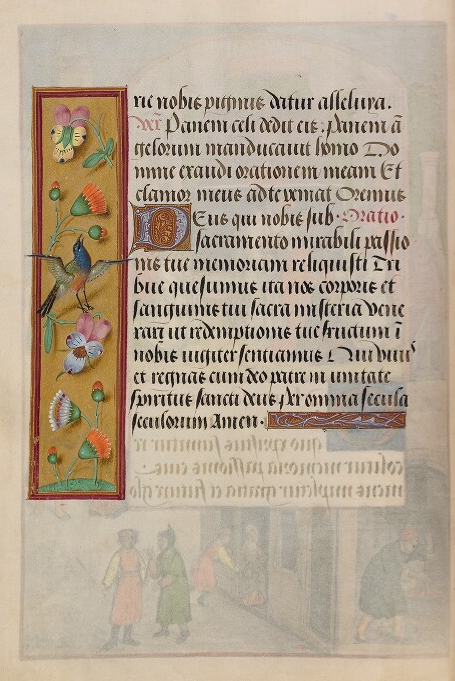 rie nobis pignus datur alleluya.
Panem celi dedit eis. Panem ā
gelorum manducauit homo Do
mine exaudi orationem meam Et
clamor meus ad te veniat Oremus
Deus qui nobis sub Oratio.
sacramento mirabili passio
nis tue memoriam reliquisti Tri
bue quesumus ita nos corporis et
sanguinis tui sacra misteria vene
rari ut redemptionis tue fructum ī
nobis iugiter sentiamus Qui viuis
et regnas cum deo patre in unitate
spiritus sancti deus Per omnia secula
seculorum Amen.